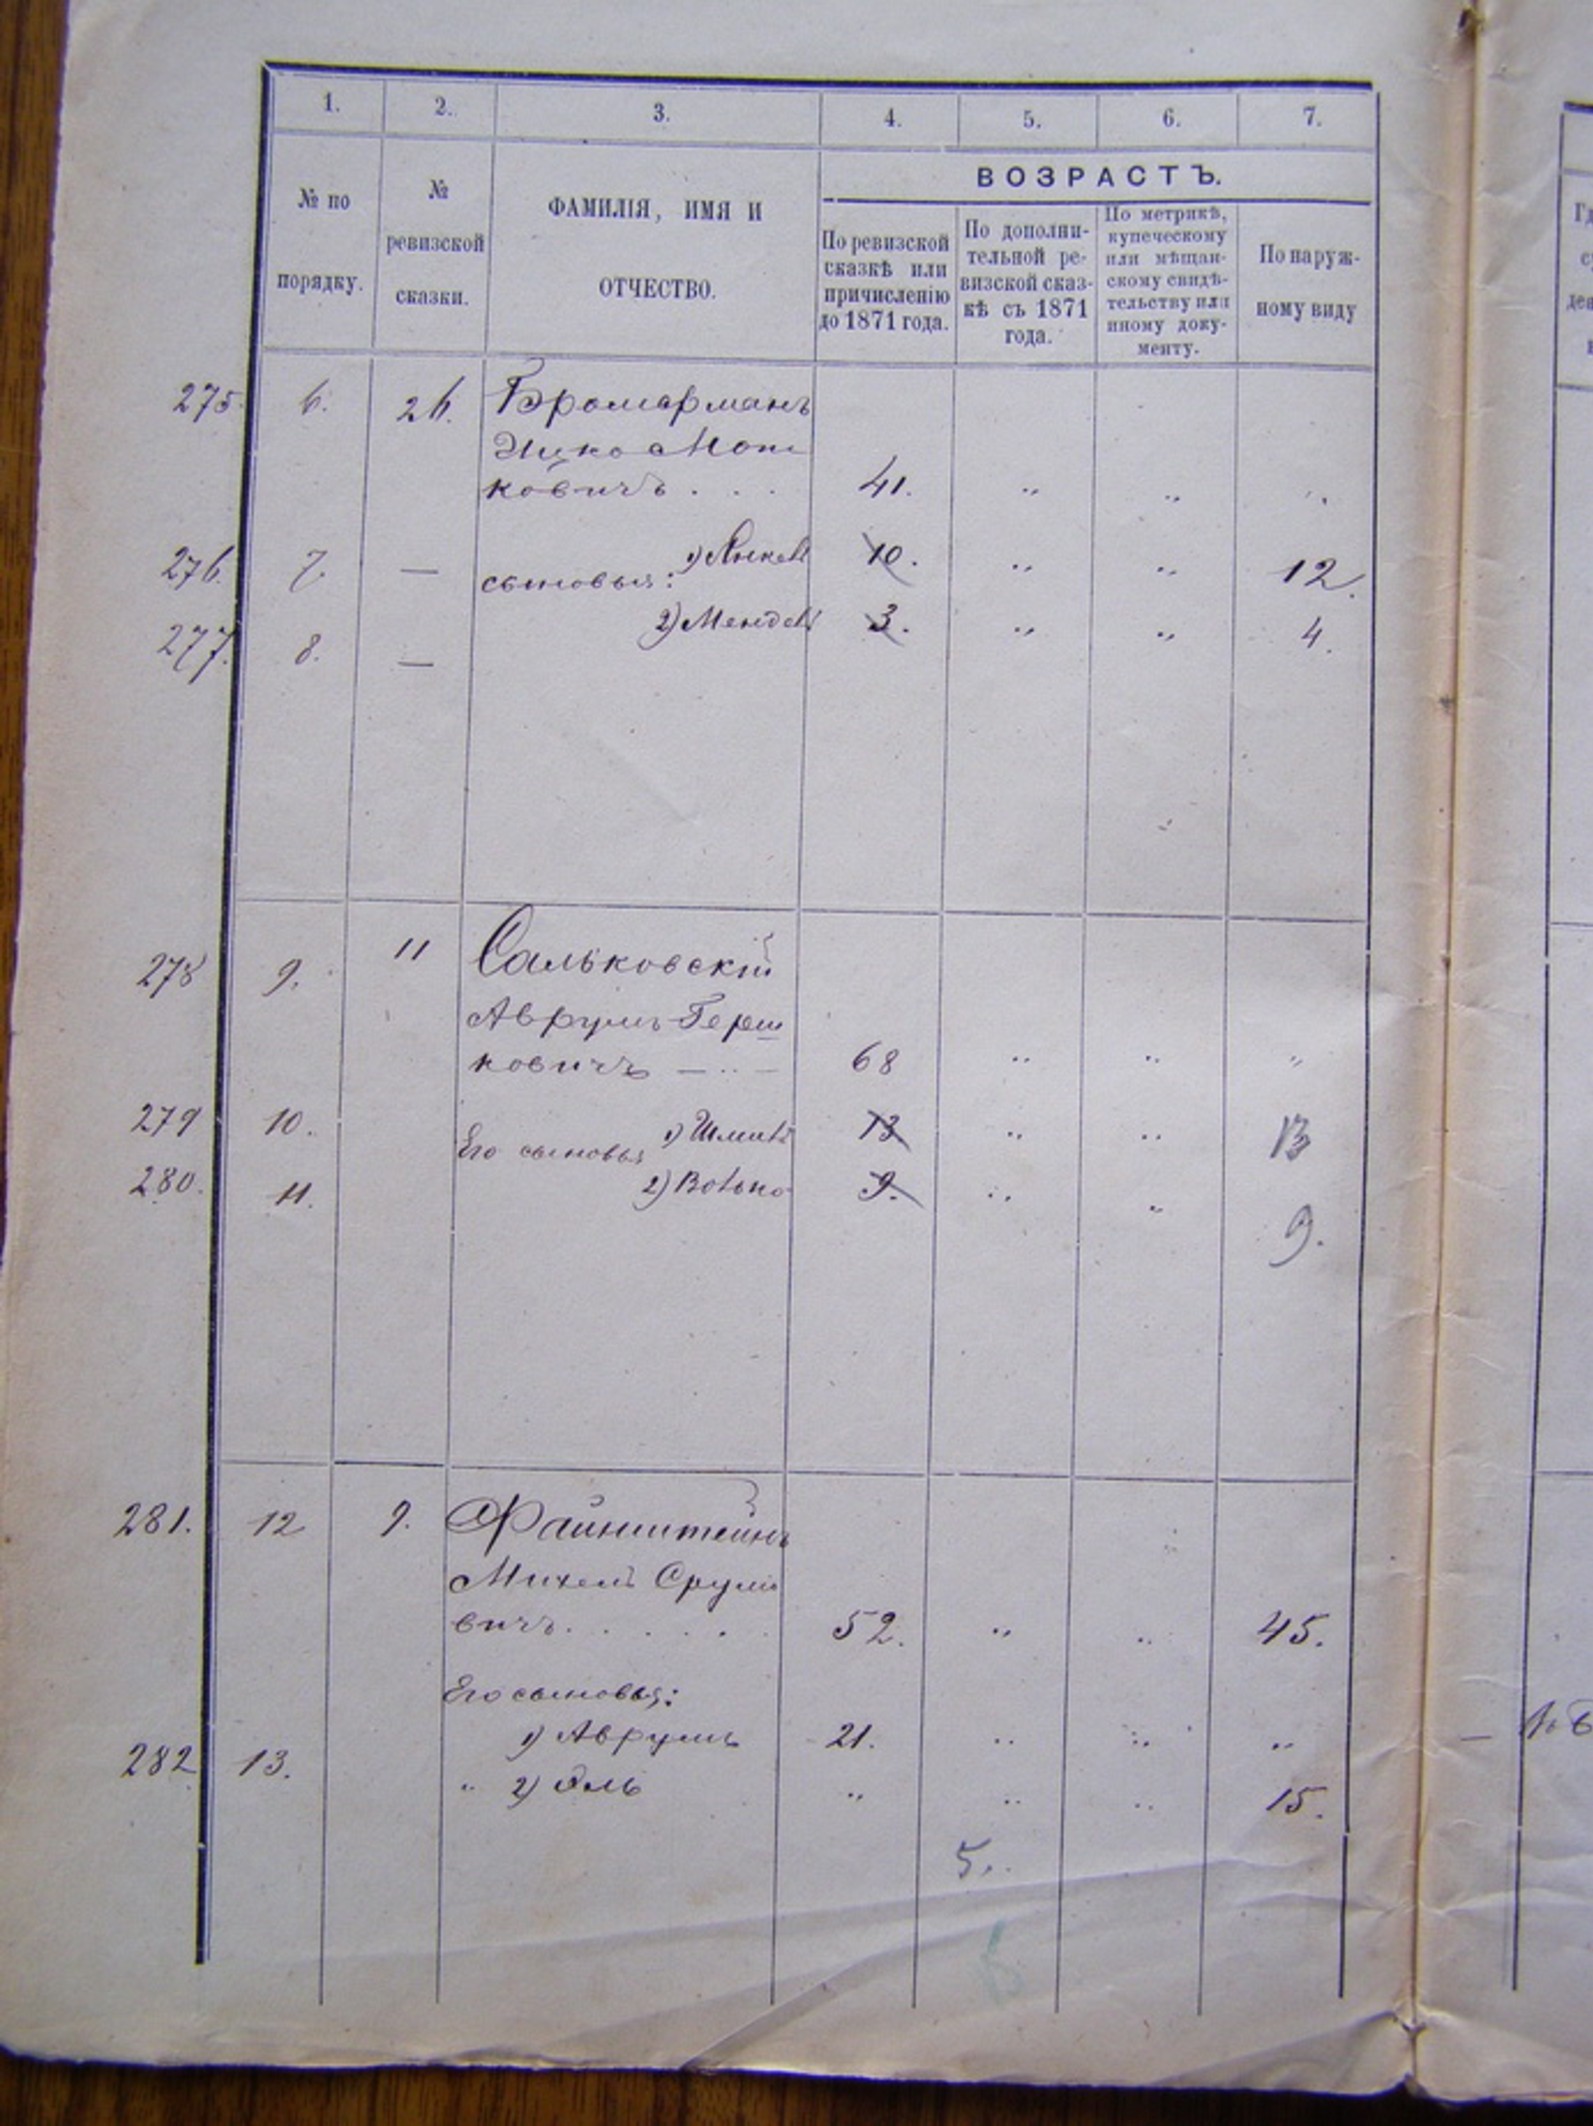 1. 2. 3. 4. 5. 6. 7.
№ по порядку.
№ ревизской сказки.
ФАМИЛІЯ, ИМЯ И
ОТЧЕСТВО.
ВОЗРАСТЪ.
По ревизской
сказкѣ или
причисленію
до 1871 года.
По дополни-
тельной ре-
визской сказ-
кѣ съ 1871
года.
По метрикѣ,
купеческому
или мѣщан-
скому свидѣ-
тельству или
иному доку-
менту.
По наруж-
ному виду
275. 6. 26.
Ицко Мош
ковичъ . . . 41. „ „ „
276. 7. — сыновья: 1) Янкель 10. „ „ 12.
277. 8. — 2) Мендель 3. „ „ 4.
278 9. 11 Сальковскій
Аврумъ Герш
ковичъ — „ — 68 „ „ „
279 10. Его сыновья 1) Шмиль 13 „ „ 13
280. 11. 2) Волько 9. „ „ 9.
281. 12 9. Файнштейнъ
Михель Срули
вичъ . . . . . . 52. „ „ 45.
Его сыновья:
1) Аврумъ 21. „ „ „
282 13. „ 2) „ „ „ 15.
5.